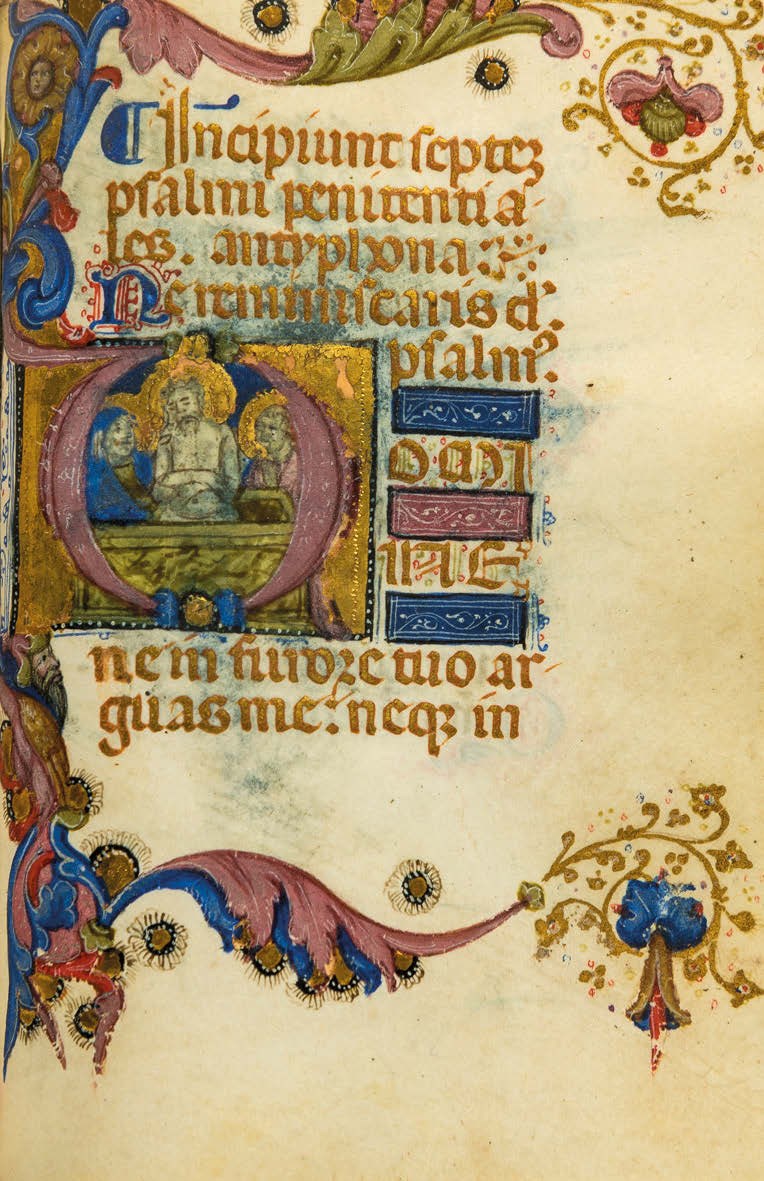 ¶ Incipiunt septeʒ
psalmi penitentia
les. antyphona
Ne reminiscaris dẽ.
psalmꝰ.
D OMI
INE
ne in furore tuo ar
guas me: neqʒ in